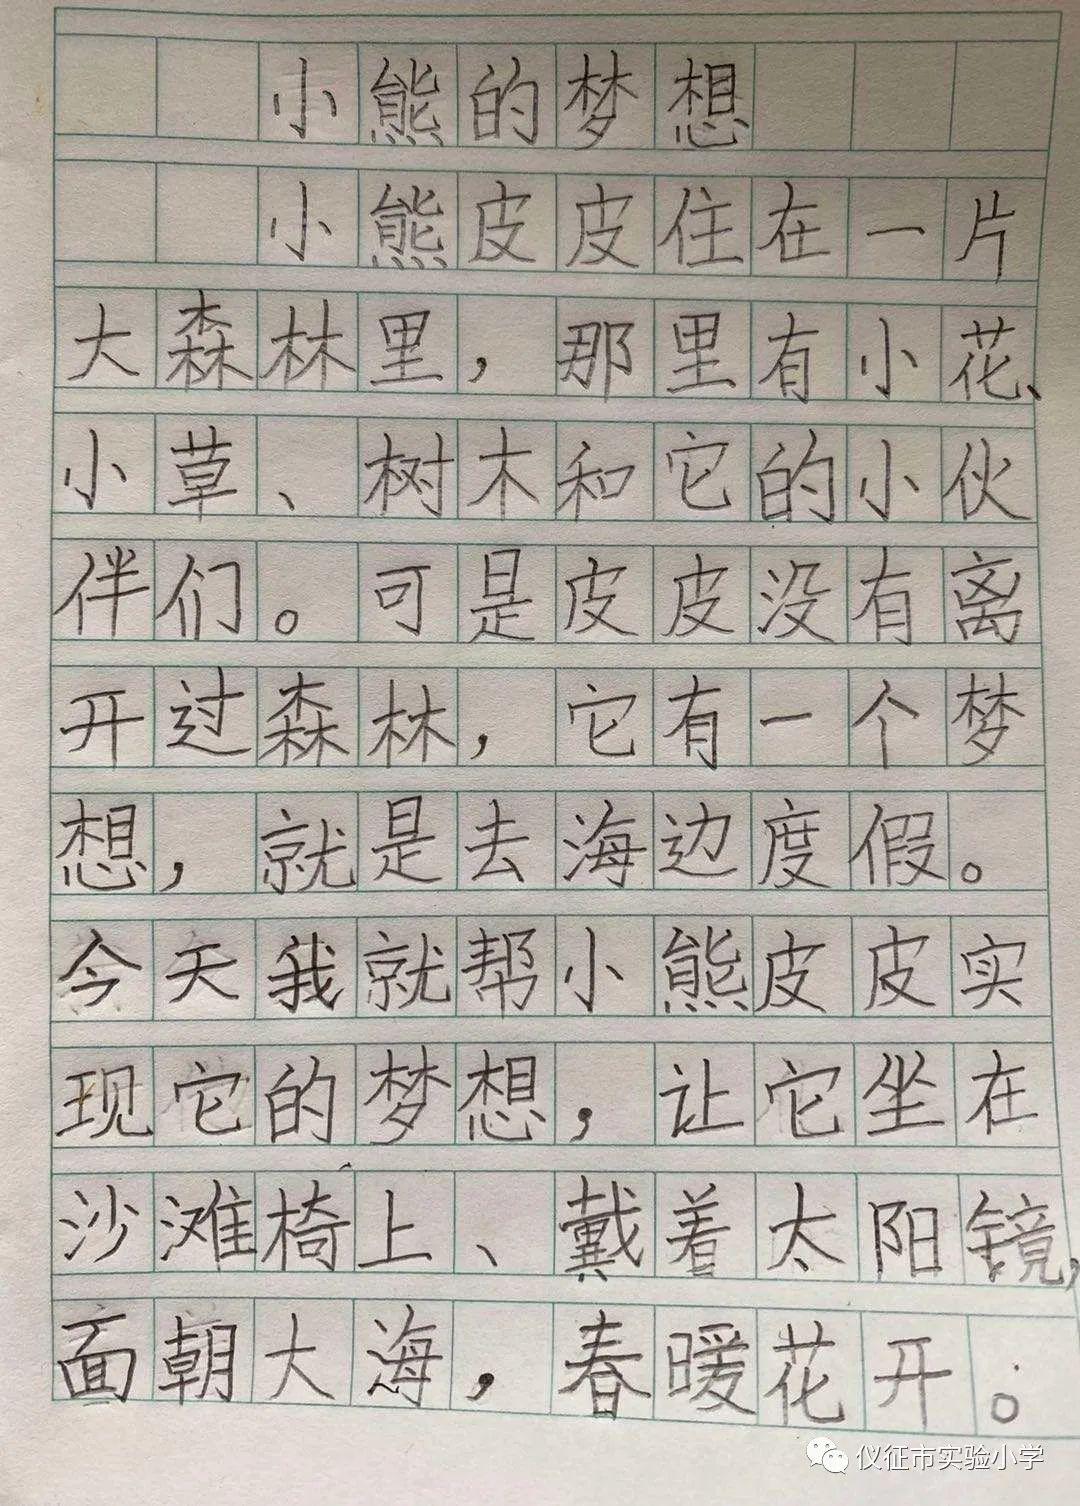 小熊的梦想
小熊皮皮住在一片
大森林里，那里有小花、
小草、树木和它的小伙
伴们。可是皮皮没有离
开过森林，它有一个梦
想，就是去海边度假。
今天我就帮小熊皮皮实
现它的梦想，让它坐在
沙滩椅上、戴着太阳镜，
面朝大海，春暖花开。
仪征市实验小学